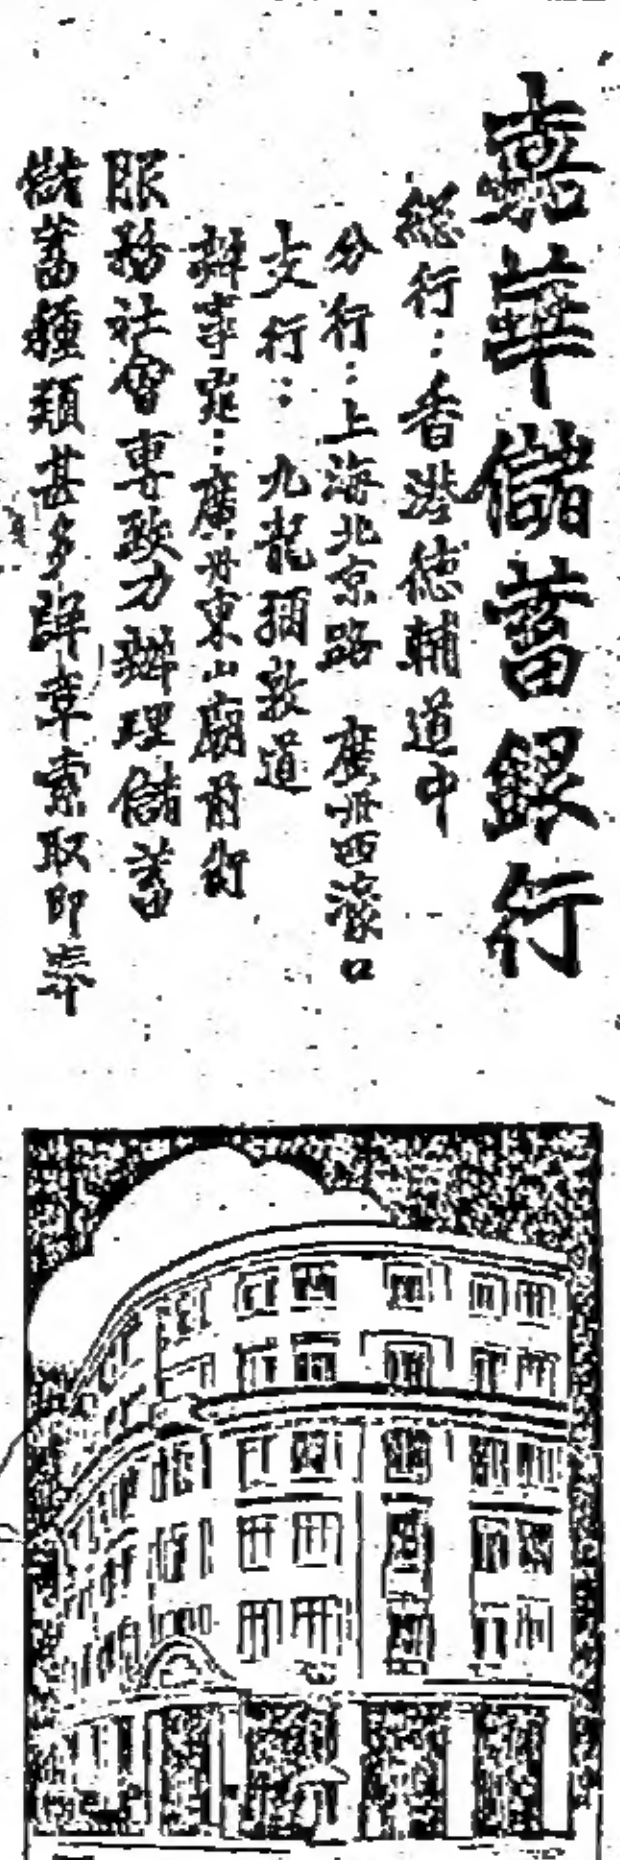 嘉華儲蓄銀行
總行：香港德輔道中
分行：上海北京路 廣州西濠口
支行：九龍彌敦道
辦事處：廣州東山廟前街
服務社會專致力辦理儲蓄
儲蓄種類甚多詳章索取即奉